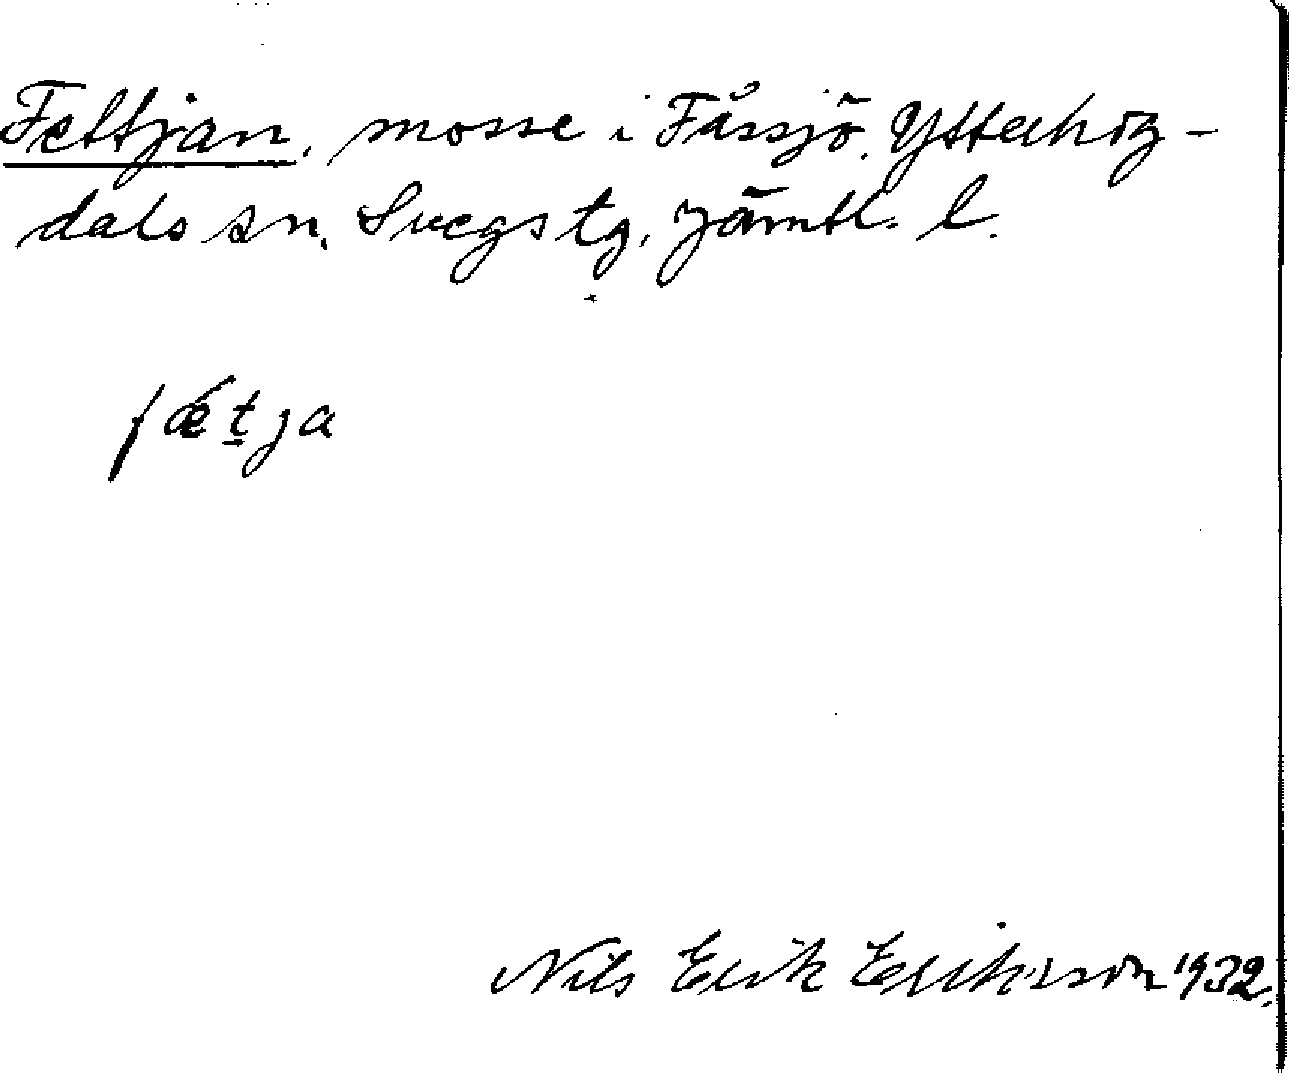 Fettjan, mosse i Fåssjö, Ytterhög-
dals sn, Svegs tg, Jämtl. l.
fǽt̲ja
Nils Erik Eriksson 1932.